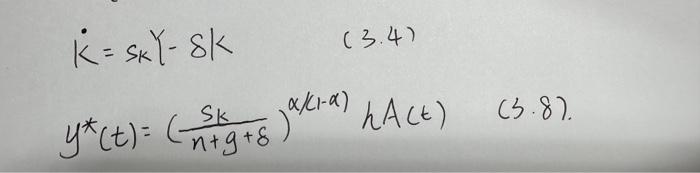 K̇ = sₖY - δK (3.4)
y*(t) = (sₖ/(n+g+δ))^(α/(1-α)) hA(t) (3.8).